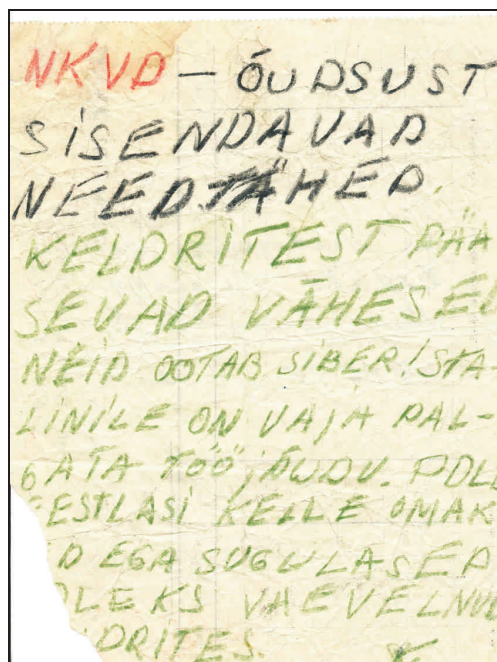 NKVD – ÕUDSUST
SISENDAVAD
NEED TÄHED.
KELDRITEST PÄÄ
SEVAD VÄHESED
NEID OOTAB SIBER! STA-
LINILE ON VAJA PAL-
GATA TÖÖJÕUDU. POLE
EESTLASI KELLE OMAK
D EGA SUGULASED
OLEKS VAEVELNUD
DRITES.